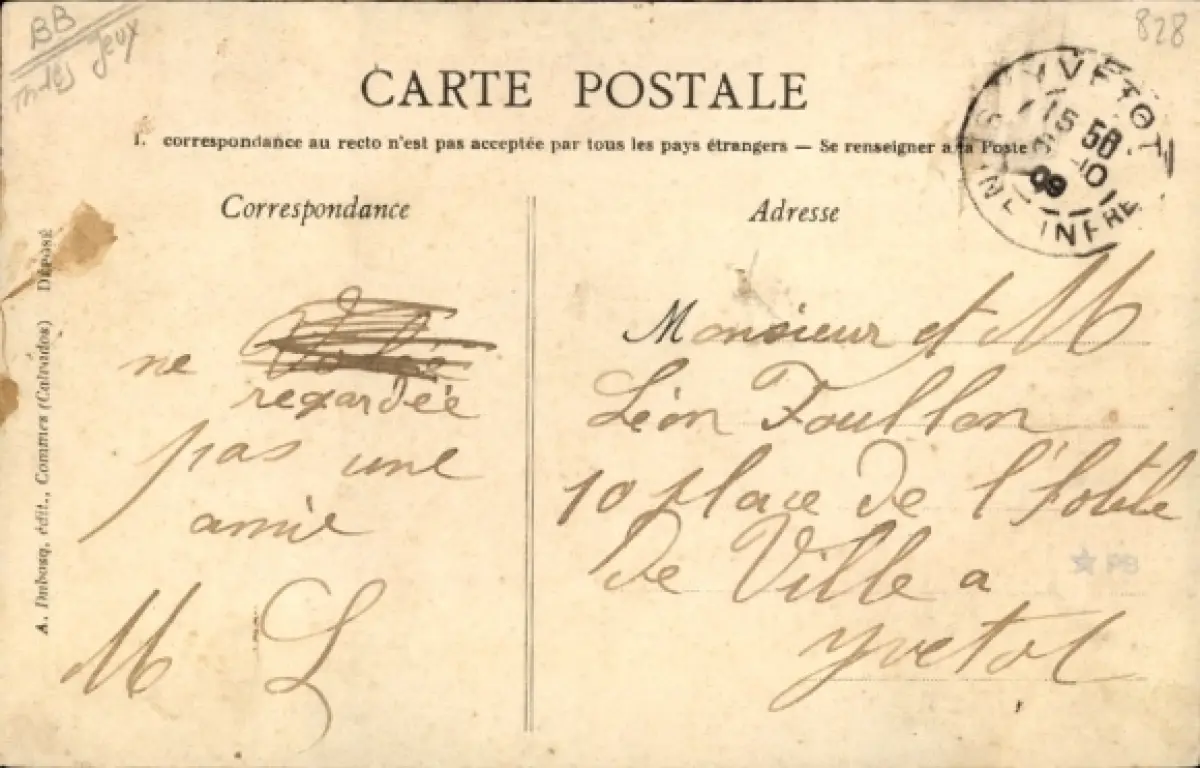 BB
jeux
828
CARTE POSTALE
1. correspondance au recto n'est pas acceptée par tous les pays étrangers — Se renseigner a la Poste
YVETOT
15 50
10
09
INFRE
Correspondance
Adresse
A. Dubosq, édit., Commes (Calvados) DÉPOSÉ
ne
regardée
pas une
amie
M L
Monsieur et M
Léon Foullon
10 place de l'hotele
de Ville a
yvetot
PB